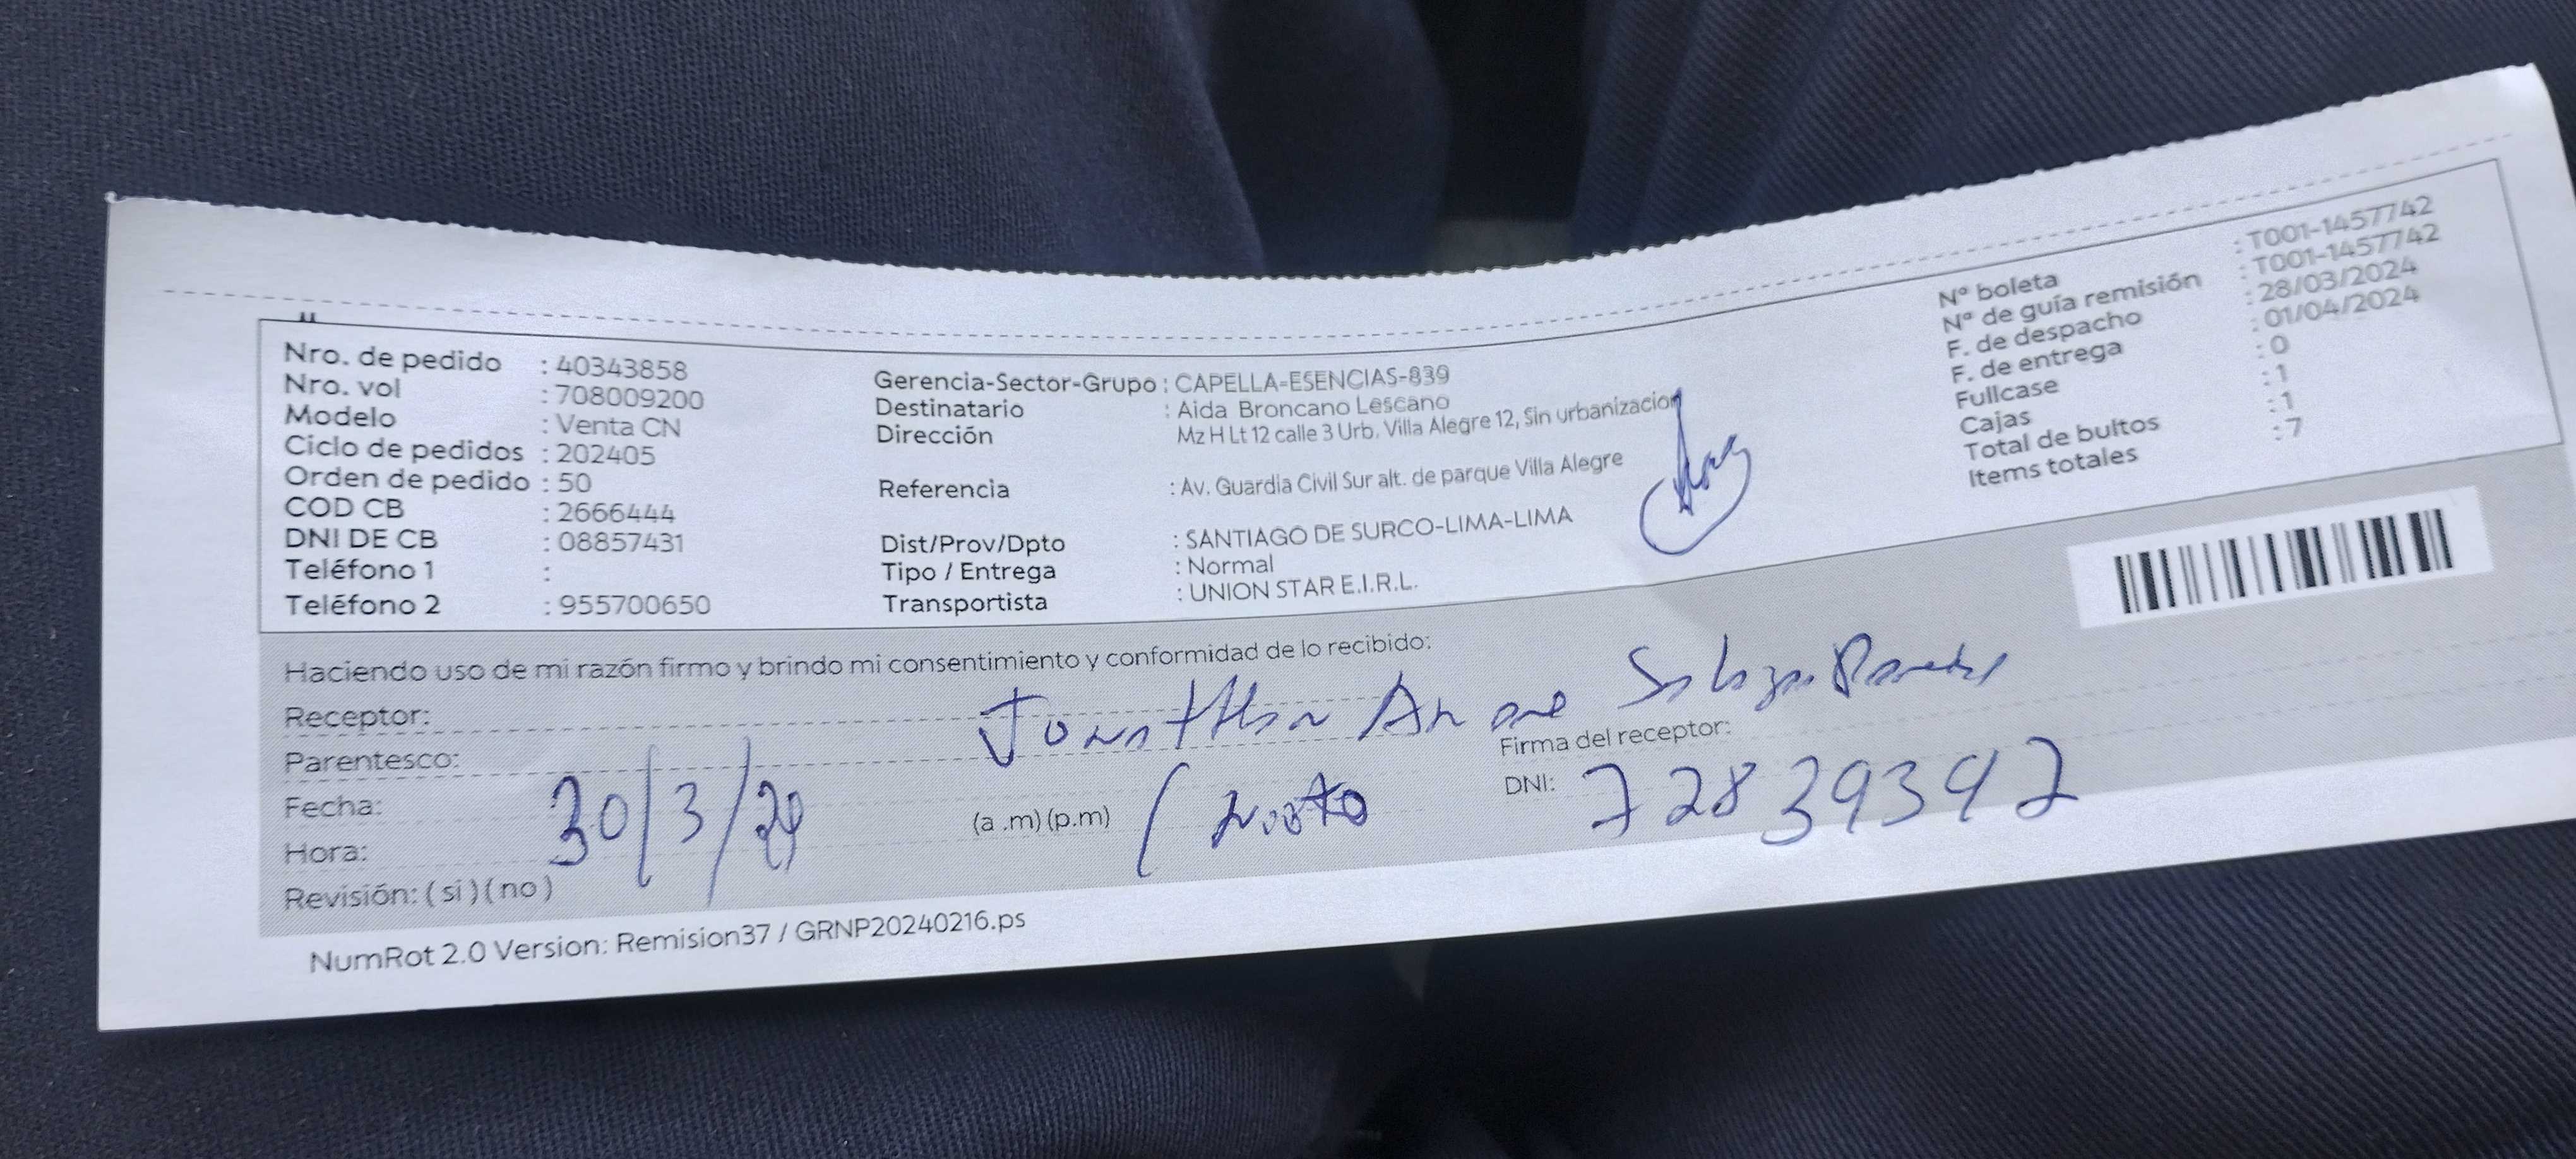 Nro. de pedido : 40343858
Nro. vol : 708009200
Modelo : Venta CN
Ciclo de pedidos : 202405
Orden de pedido : 50
COD CB : 2666444
DNI DE CB : 08857431
Teléfono 1 :
Teléfono 2 : 955700650
Gerencia-Sector-Grupo : CAPELLA-ESENCIAS-839
Destinatario : Aida Broncano Lescano
Dirección Mz H Lt 12 calle 3 Urb. Villa Alegre 12, Sin urbanizacion
Referencia : Av. Guardia Civil Sur alt. de parque Villa Alegre
Dist/Prov/Dpto : SANTIAGO DE SURCO-LIMA-LIMA
Tipo / Entrega : Normal
Transportista : UNION STAR E.I.R.L.
N° boleta : T001-1457742
N° de guía remisión : T001-1457742
F. de despacho : 28/03/2024
F. de entrega : 01/04/2024
Fullcase : 0
Cajas : 1
Total de bultos : 1
Items totales : 7
Haciendo uso de mi razón firmo y brindo mi consentimiento y conformidad de lo recibido:
Receptor:
Parentesco:
Fecha: 30/3/24
Hora: (a .m) (p.m)
Revisión: ( si ) ( no )
Firma del receptor:
DNI: 72839392
NumRot 2.0 Version: Remision37 / GRNP20240216.ps